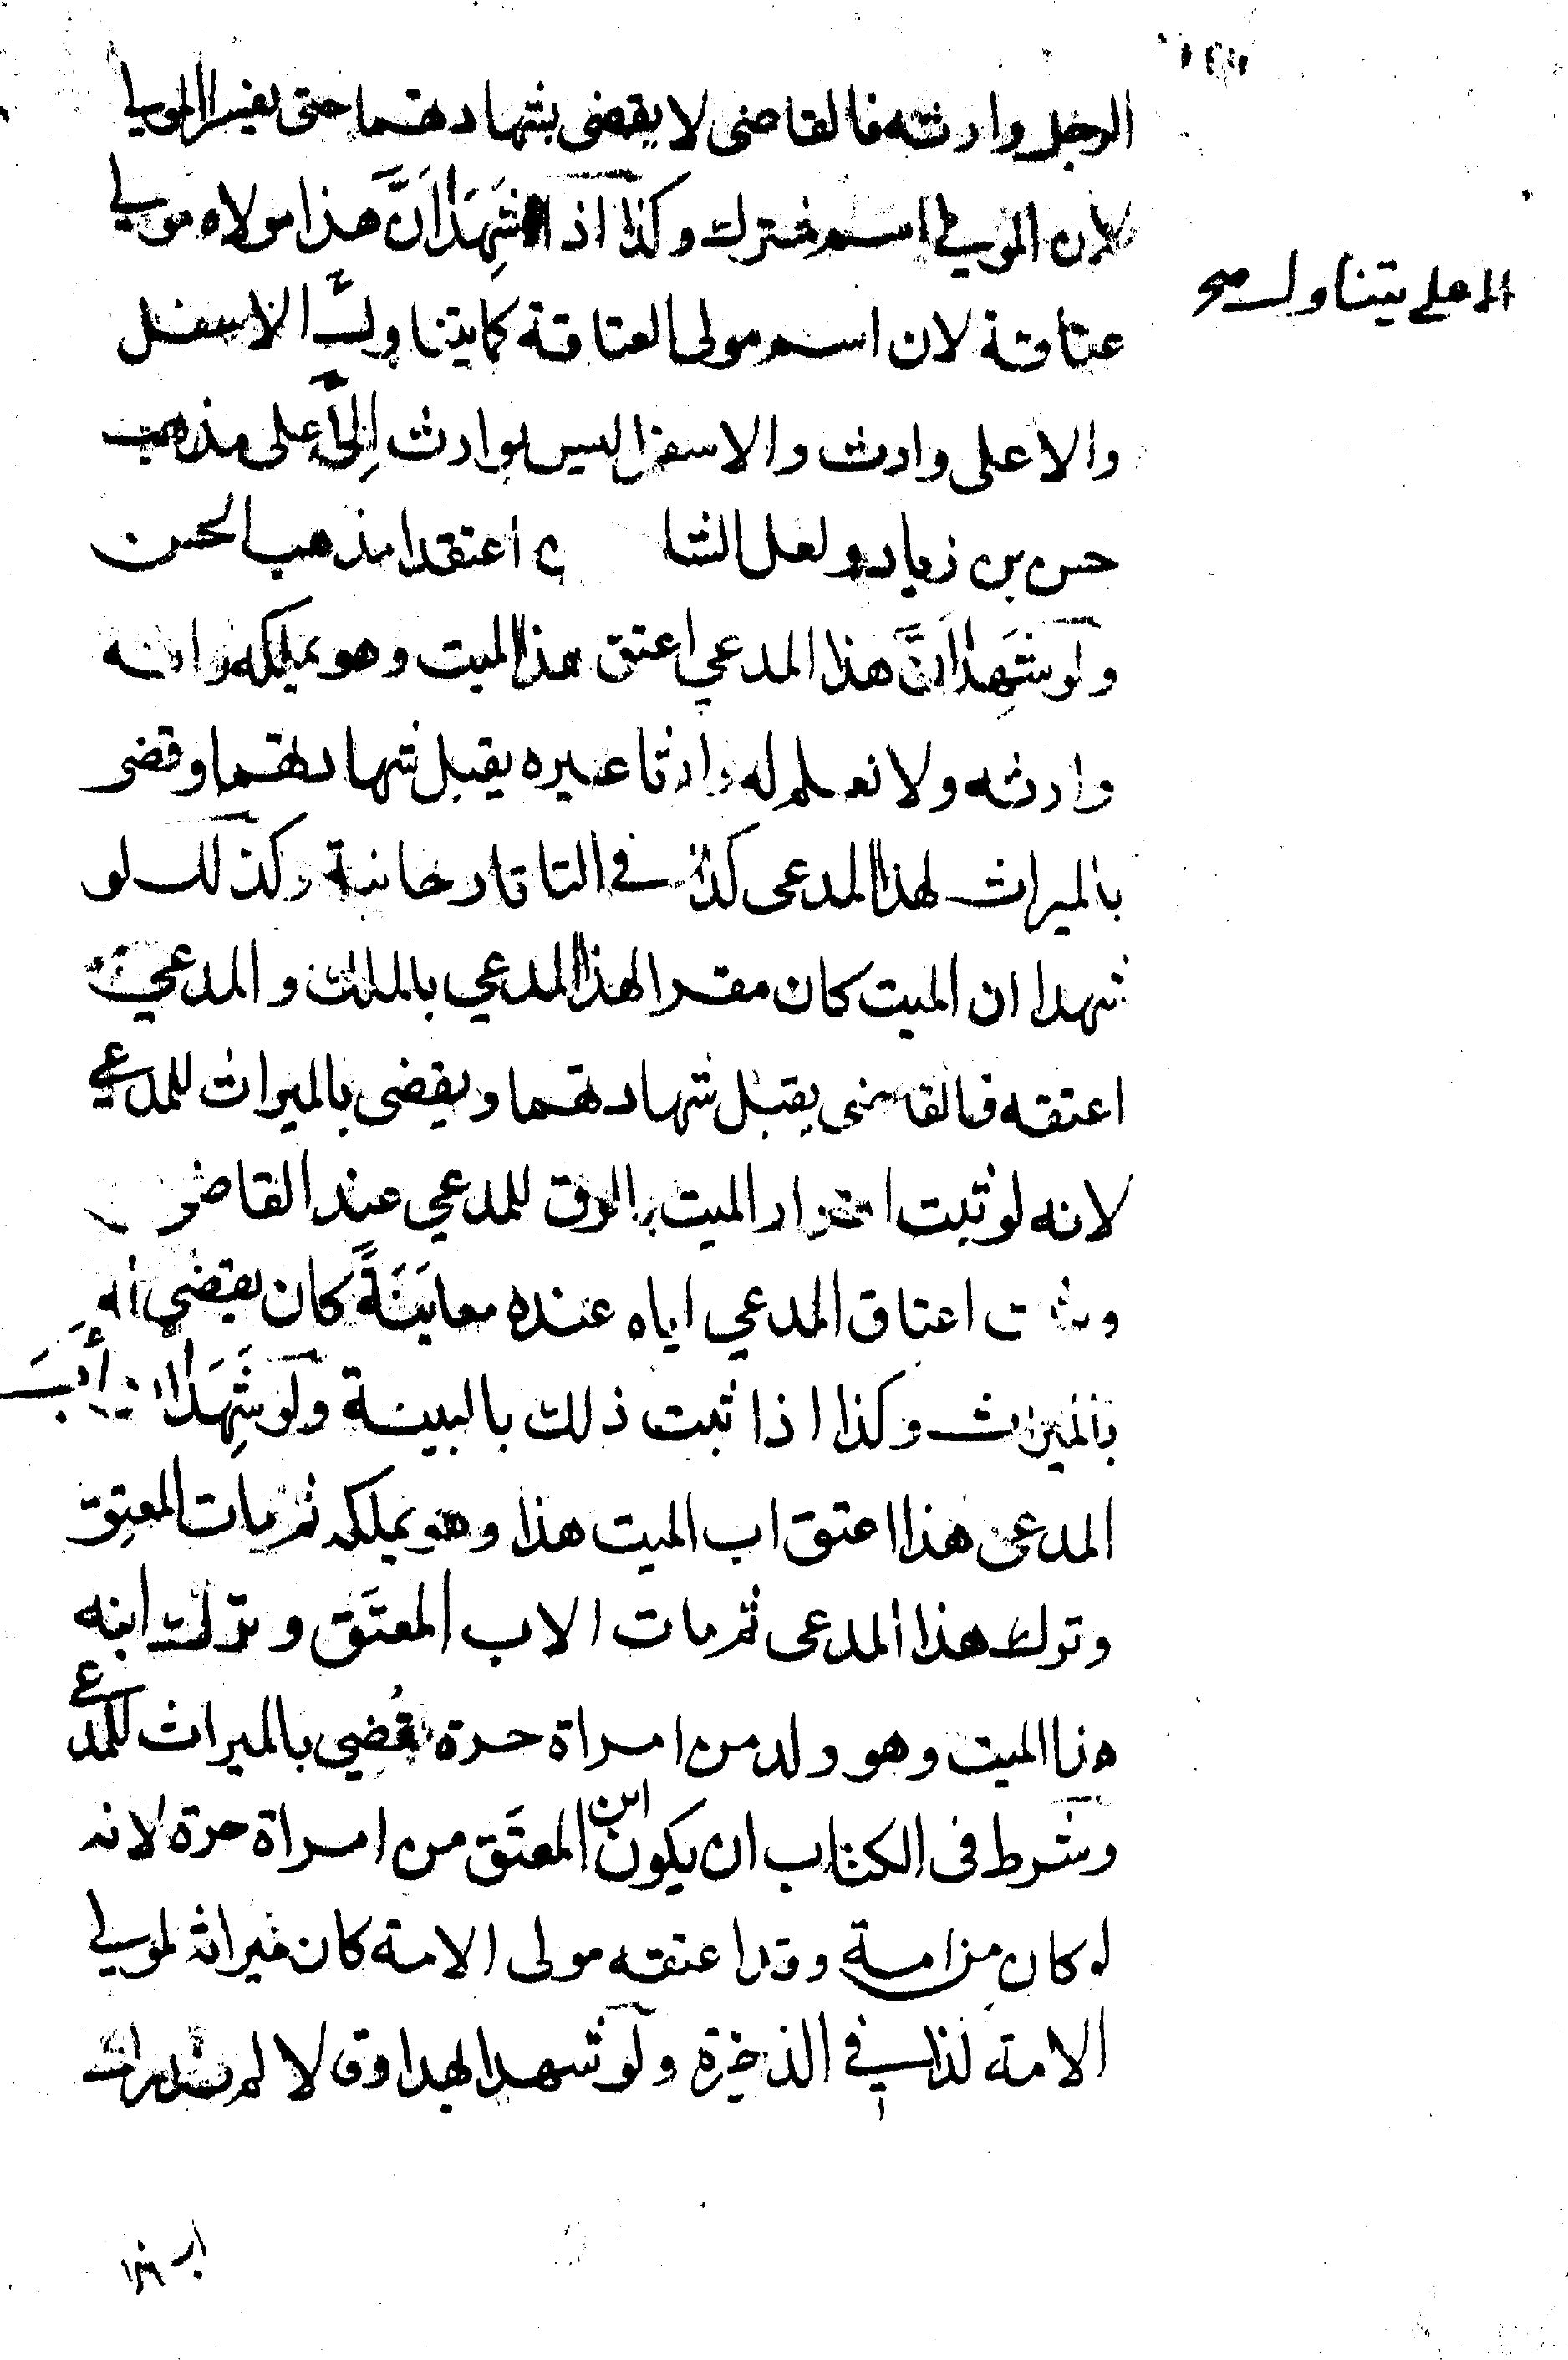 الرجل وارثه فالقاضى لا يقضى بشهادتهما حتى يفسرا المولى
لان المولى اسم مشترك وكذا اذا شَهِدَا اَنَّ هذا مولاه مولى
الاعلى يتناول صح
عتاقة لان اسم مولى العتاقة كما يتناول الاسفل
والاعلى وارث والاسفل ليس بوارث اِلَّا على مذهب
حسن بن زياد ولعل الشا اعتقدا مذهب الحسن
ولو شَهِدَا اَنَّ هذا المدعي اعتق هذا الميت وهو يملكه وانه
وارثه ولا نعلم له وارثا غيره يقبل شهادتهما وقضى
بالميراث لهذا المدعى كذا فى التاتارخانية وكذلك لو
شهدا ان الميت كان مقرا لهذا المدعي بالملك والمدعي
اعتقه فالقاضى يقبل شهادتهما ويقضى بالميراث للمدعي
لانه لو ثبت اقرار الميت بالرق للمدعي عند القاضى
وثبت اعتاق المدعي اياه عنده معايَنَةً كان يقضي له
بالميراث وكذا اذا ثبت ذلك بالبينة ولو شَهِدَا
المدعى هذا اعتق اب الميت هذا وهو يملكه ثم مات المعتِق
وترك هذا المدعى ثم مات الاب المعتَق وترك ابنه
هذا الميت وهو ولد من امراة حرة قُضي بالميراث للمدعي
وشرط فى الكتاب ان يكون ابن المعتَق من امراة حرة لانه
لو كان من امة وقد اعتقه مولى الامة كان ميراثه لمولى
الامة كذا في الذخيرة ولو شهدا بهذا وقالا لم ندرك